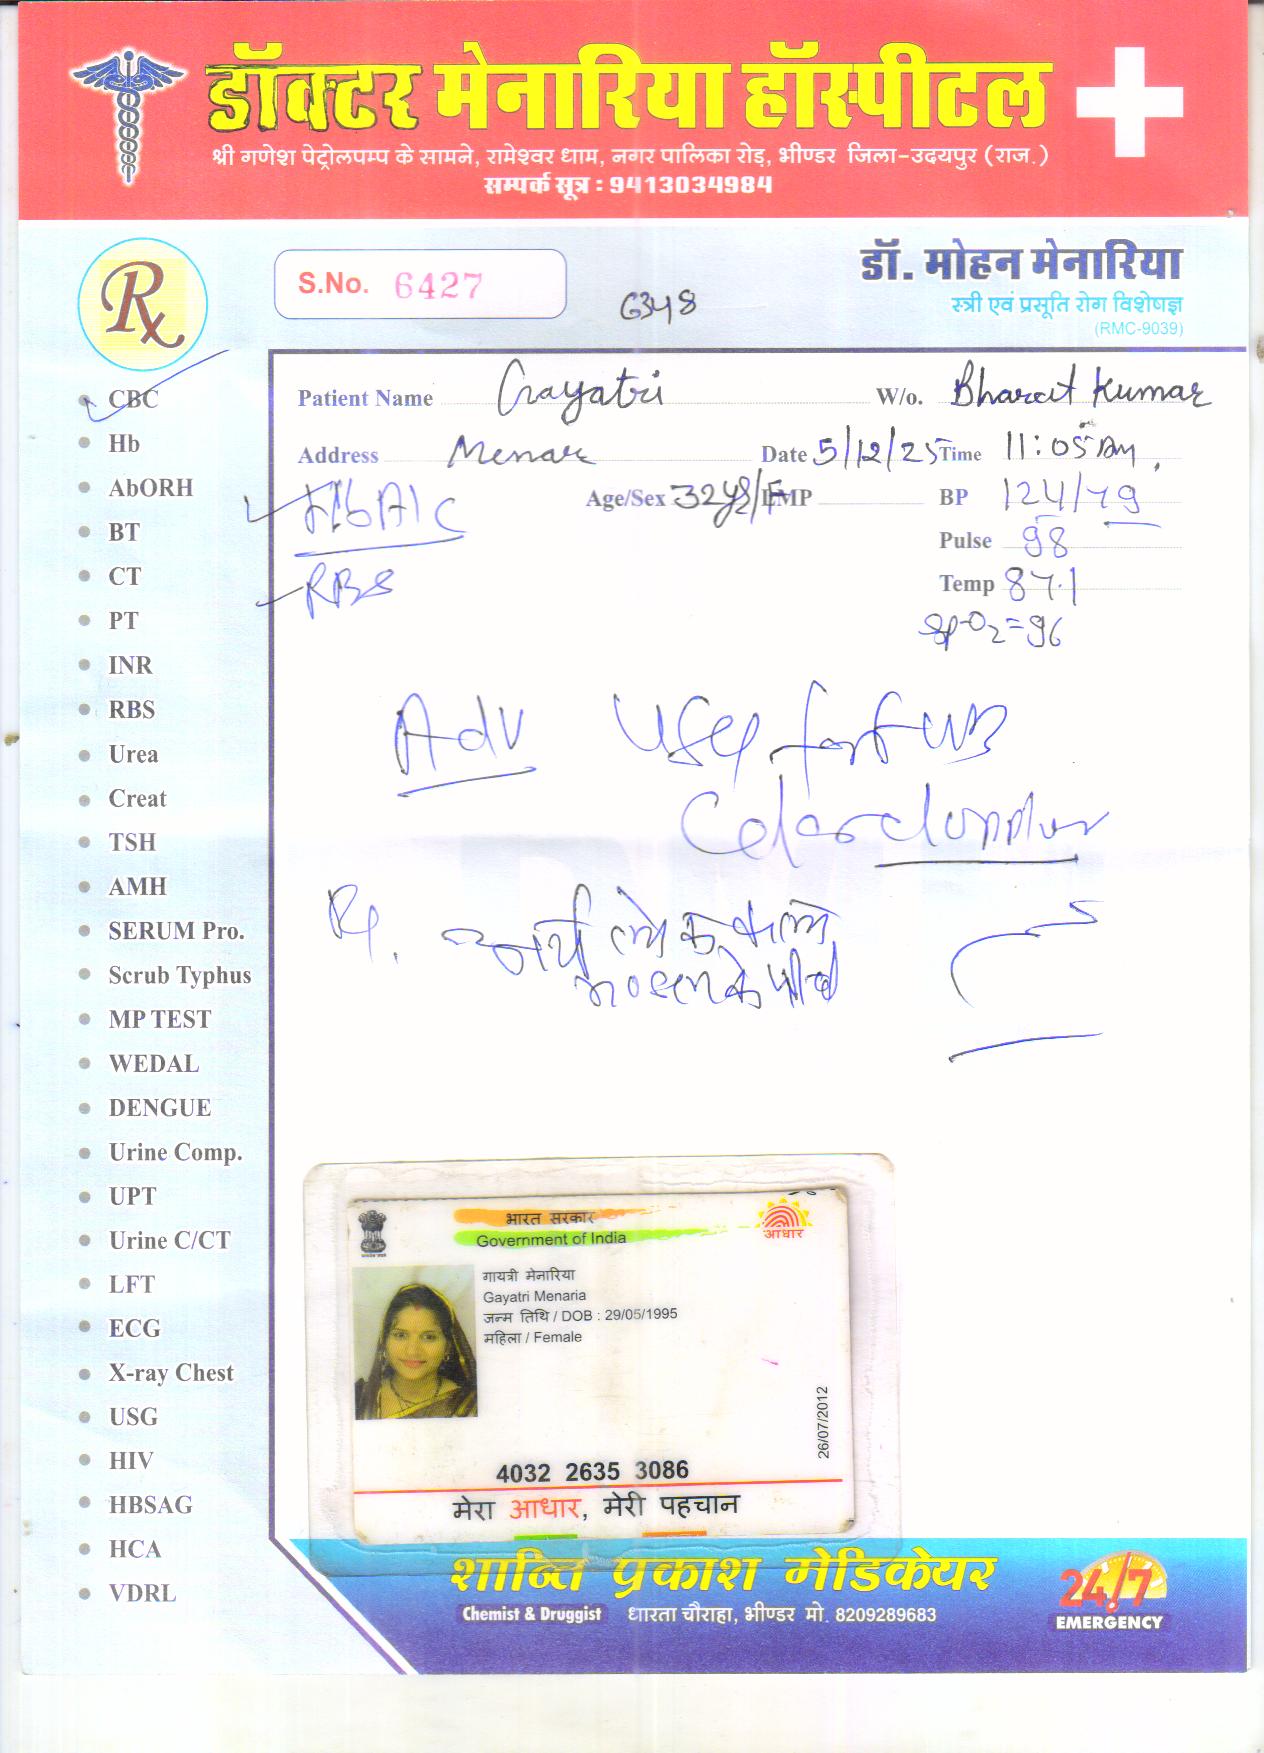 डॉक्टर मेनारिया हॉस्पीटल
श्री गणेश पेट्रोलपम्प के सामने, रामेश्वर धाम, नगर पालिका रोड़, भीण्डर जिला-उदयपुर (राज.)
सम्पर्क सूत्र : 9413034984
Rx
S.No. 6427
6348
डॉ. मोहन मेनारिया
स्त्री एवं प्रसूति रोग विशेषज्ञ
(RMC-9039)
Patient Name Gayatri W/o. Bharat Kumar
Address Menar Date 5/12/25 Time 11:05 AM
Age/Sex 32 ys/F LMP BP 124/79
Pulse 98
Temp 87.1
SpO2=96
HbA1c
RBS
Adv USG for FWB
Color doppler
Rx.
CBC
Hb
AbORH
BT
CT
PT
INR
RBS
Urea
Creat
TSH
AMH
SERUM Pro.
Scrub Typhus
MP TEST
WEDAL
DENGUE
Urine Comp.
UPT
Urine C/CT
LFT
ECG
X-ray Chest
USG
HIV
HBSAG
HCA
VDRL
भारत सरकार
Government of India
आधार
गायत्री मेनारिया
Gayatri Menaria
जन्म तिथि / DOB : 29/05/1995
महिला / Female
26/07/2012
4032 2635 3086
मेरा आधार, मेरी पहचान
शान्ति प्रकाश मेडिकेयर
Chemist & Druggist धारता चौराहा, भीण्डर मो. 8209289683
24/7
EMERGENCY